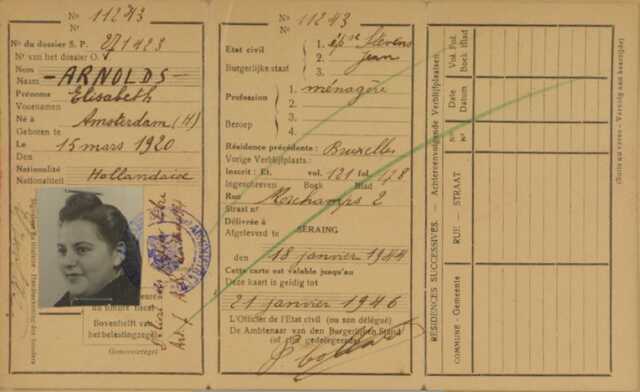 Nº 11243
Nº
Nº du dossier S. P. 271423
Nº van het dossier O.
Nom
Naam ARNOLDS
Prénoms
Voornamen Elisabeth
Né à
Geboren te Amsterdam (H)
Le 15 mars 1920
Den
Nationalité
Nationaliteit Hollandaise
du timbre fiscal
Bovenhelft van
het belastingzegel
Gemeentezegel
Nº 11243
Nº
Etat civil 1. épse Stevens
Burgerlijke staat 2. Jean
3.
4.
Profession 1. ménagère
2.
Beroep 3.
4.
Résidence précédente : Bruxelles
Vorige Verblijfplaats :
Inscrit : Et. vol. 121 fol. 178
Ingeschreven Boek Blad
Rue
Straat nº
Délivrée à
Afgeleverd te SERAING
le
den 18 janvier 1944
Cette carte est valable jusqu'au
Deze kaart is geldig tot
21 janvier 1946
L'Officier de l'Etat civil (ou son délégué)
De Ambtenaar van den Burgerlijken Stand
(of zijn gedelegeerde)
RESIDENCES SUCCESSIVES. Achtereenvolgende Verblijfplaatsen
COMMUNE - Gemeente
RUE — STRAAT
Nº
Nº
Date
Datum
Vol. Fol.
Boek Blad
(Suite au verso - Vervolg aan keerzijde)